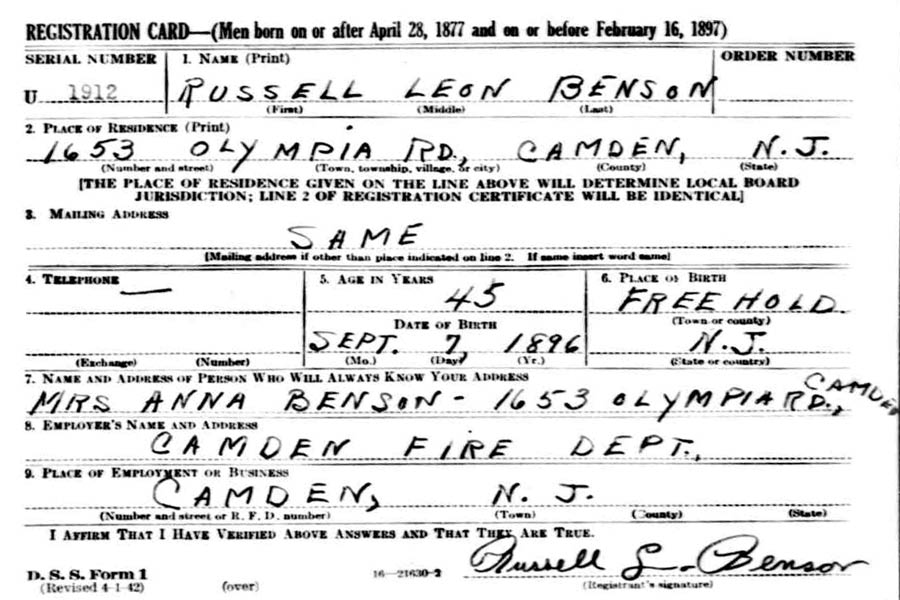 REGISTRATION CARD—(Men born on or after April 28, 1877 and on or before February 16, 1897)
SERIAL NUMBER 1. NAME (Print) ORDER NUMBER
U 1912 RUSSELL LEON BENSON
(First) (Middle) (Last)
2. PLACE OF RESIDENCE (Print)
1653 OLYMPIA RD., CAMDEN, N.J.
(Number and street) (Town, township, village, or city) (County) (State)
[THE PLACE OF RESIDENCE GIVEN ON THE LINE ABOVE WILL DETERMINE LOCAL BOARD
JURISDICTION; LINE 2 OF REGISTRATION CERTIFICATE WILL BE IDENTICAL]
3. MAILING ADDRESS
SAME
[Mailing address if other than place indicated on line 2. If same insert word same]
4. TELEPHONE 5. AGE IN YEARS 6. PLACE OF BIRTH
— 45 FREEHOLD
DATE OF BIRTH (Town or county)
SEPT. 7 1896 N.J.
(Exchange) (Number) (Mo.) (Day) (Yr.) (State or country)
7. NAME AND ADDRESS OF PERSON WHO WILL ALWAYS KNOW YOUR ADDRESS
MRS ANNA BENSON - 1653 OLYMPIA RD., CAMDEN
8. EMPLOYER'S NAME AND ADDRESS
CAMDEN FIRE DEPT.,
9. PLACE OF EMPLOYMENT OR BUSINESS
CAMDEN, N. J.
(Number and street or R. F. D. number) (Town) (County) (State)
I AFFIRM THAT I HAVE VERIFIED ABOVE ANSWERS AND THAT THEY ARE TRUE.
Russell L. Benson
D. S. S. Form 1 16—21630-2 (Registrant's signature)
(Revised 4-1-42) (over)